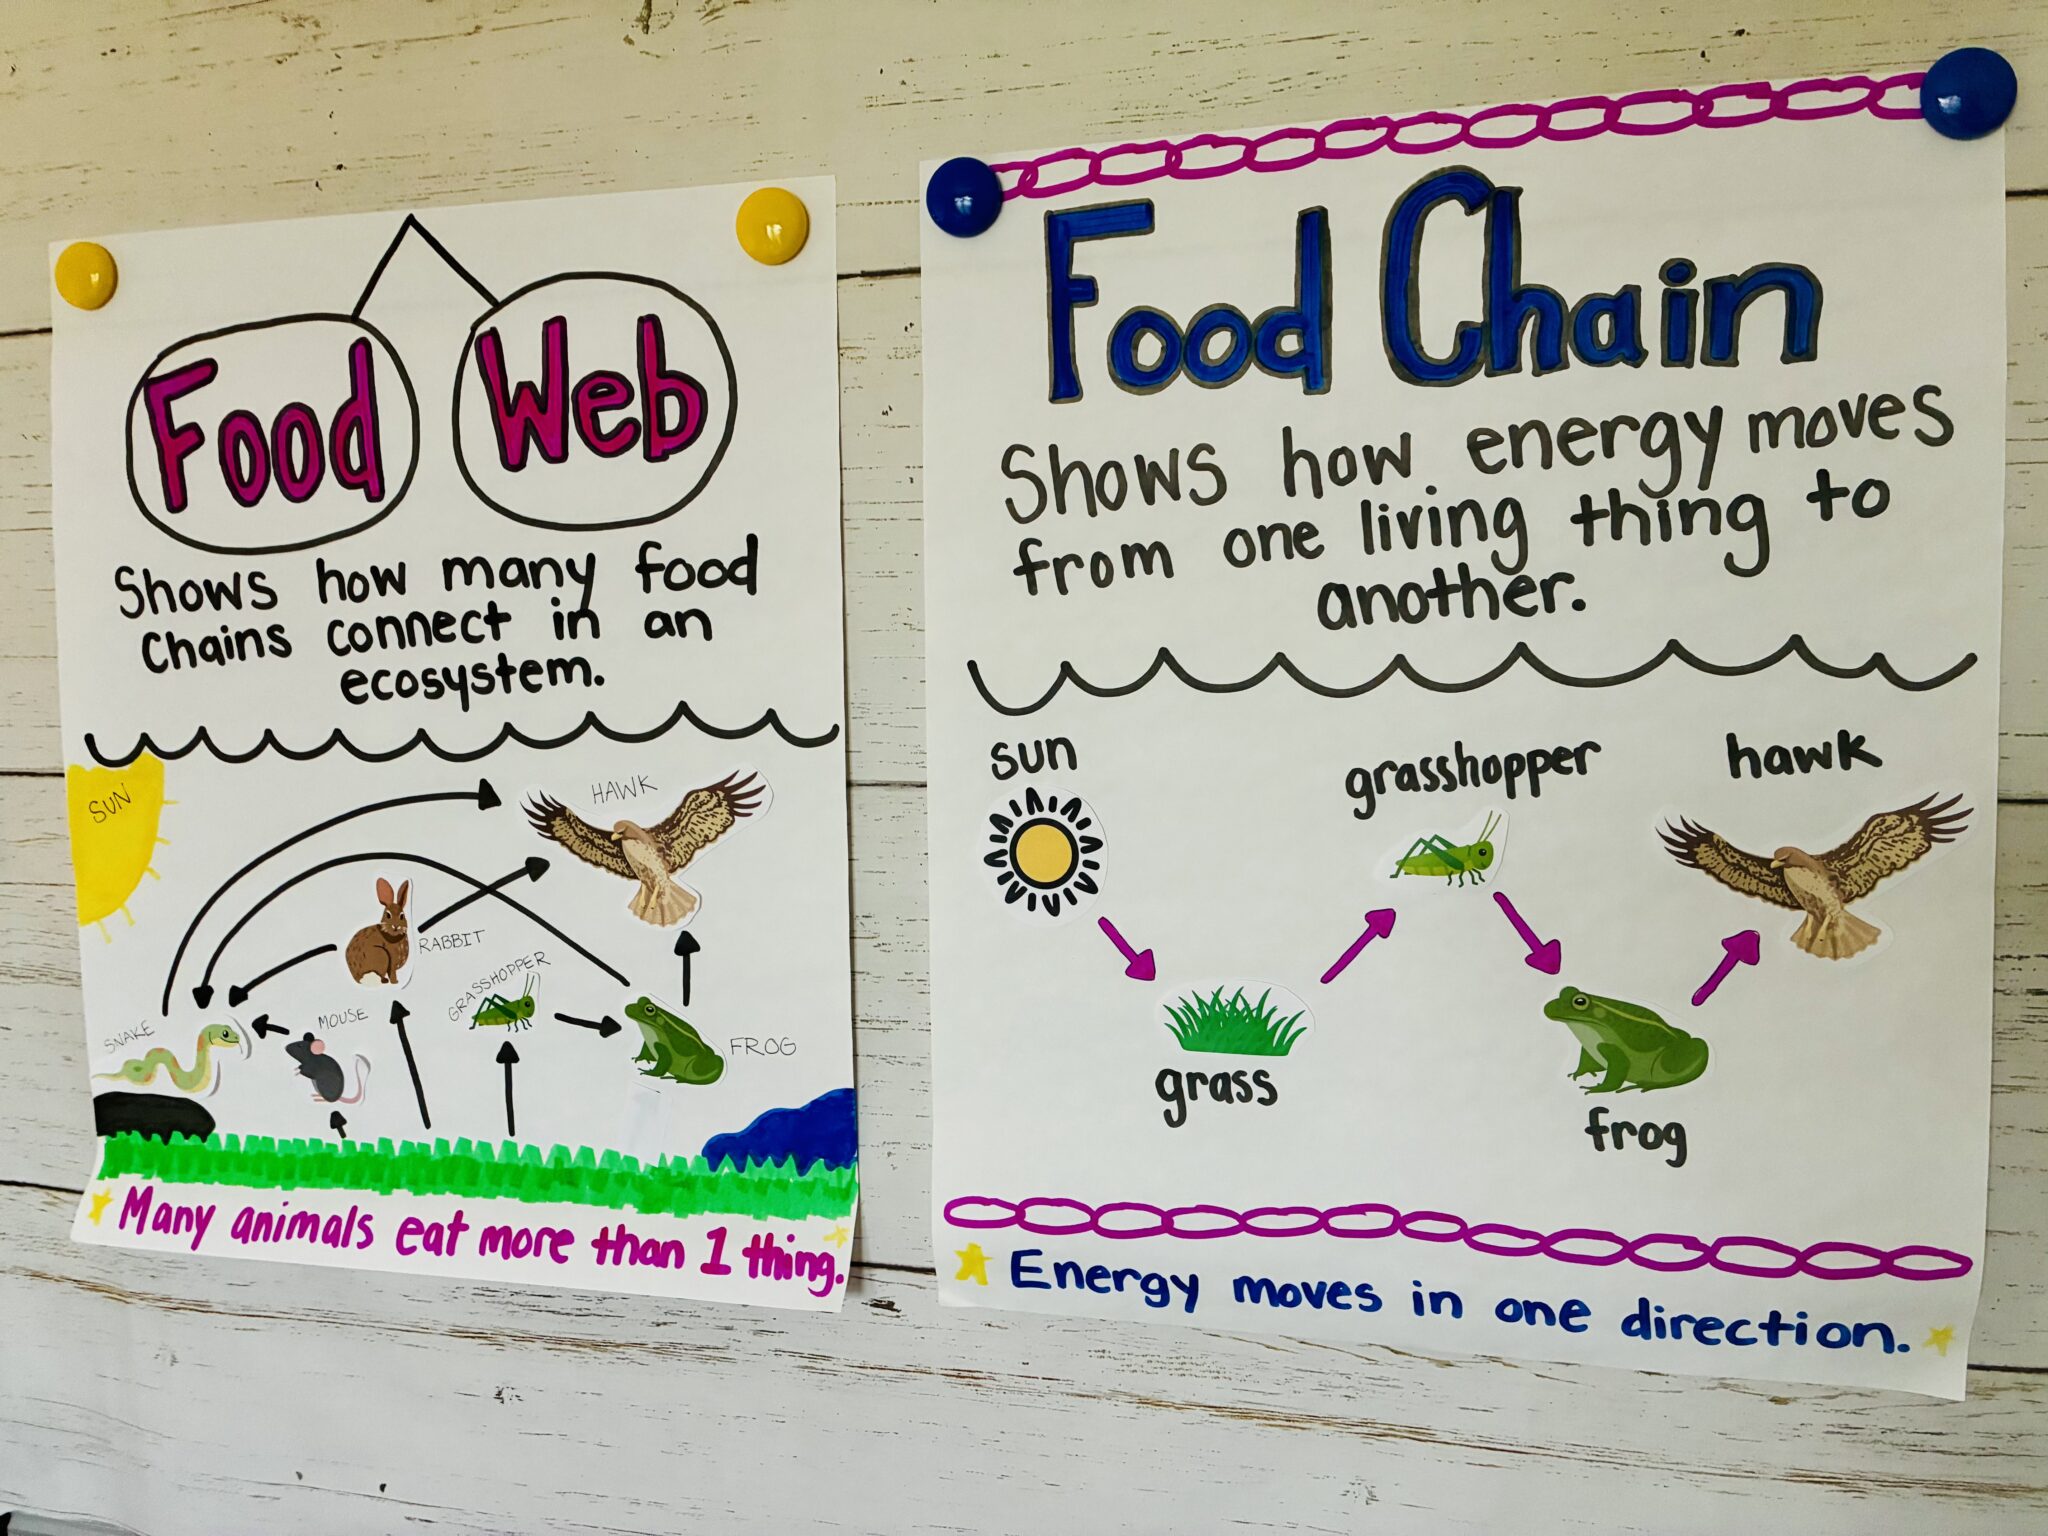 Food Web
Shows how many food
chains connect in an
ecosystem.
SUN
HAWK
RABBIT
GRASSHOPPER
SNAKE
MOUSE
FROG
Many animals eat more than 1 thing.
Food Chain
Shows how energy moves
from one living thing to
another.
sun
grasshopper
hawk
grass
frog
Energy moves in one direction.